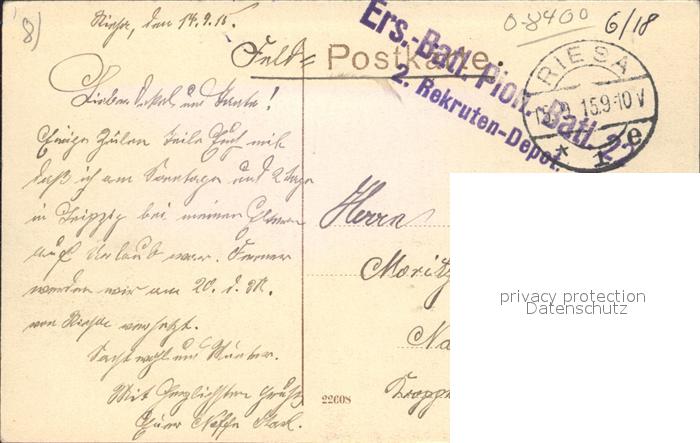 8)
Riesa, den 14.9.15.
0-8400
6/18
Feld= Postkarte.
Ers.-Batl. Pion. Batl. 22
2. Rekruten-Depot.
RIESA
15.9. 10 V
* 1 e
Lieber Onkel und Tante!
Einige Zeilen teile Euch mit
daß ich am Sonntage und 2 Tage
in Leipzig bei meinen Eltern
auf Urlaub war. Ferner
werden wir am 20. d. M.
von Riesa versetzt.
Mit herzlichsten Gruß
Euer Neffe Karl.
Herrn
Moritz
Na
22608
privacy protection
Datenschutz